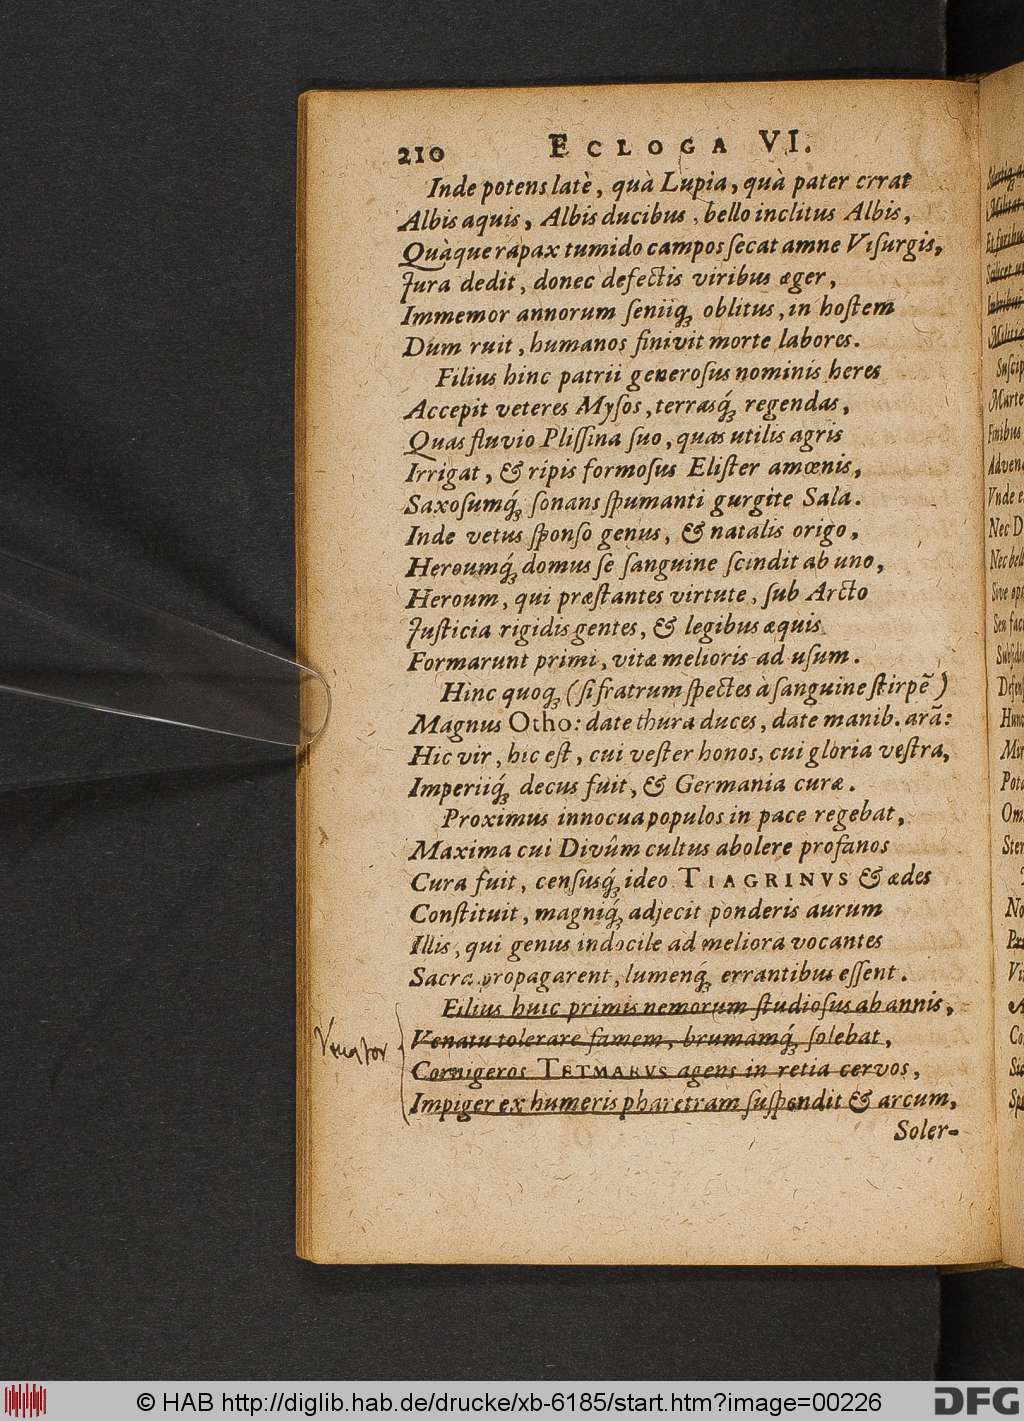 210 ECLOGA VI.
Inde potens latè, quà Lupia, quà pater errat
Albis aquis, Albis ducibus, bello inclitus Albis,
Quàque rapax tumido campos ſecat amne Viſurgis,
Jura dedit, donec defectis viribus æger,
Immemor annorum ſeniiq́ꝫ oblitus, in hoſtem
Dum ruit, humanos finivit morte labores.
Filius hinc patrii generoſus nominis heres
Accepit veteres Myſos, terrasq́ꝫ regendas,
Quas fluvio Pliſſina ſuo, quas utilis agris
Irrigat, & ripis formoſus Eliſter amœnis,
Saxoſumq́ꝫ ſonans ſpumanti gurgite Sala.
Inde vetus ſponſo genus, & natalis origo,
Heroumq́ꝫ domus ſe ſanguine ſcindit ab uno,
Heroum, qui præſtantes virtute, ſub Arcto
Juſticia rigidis gentes, & legibus æquis
Formarunt primi, vitæ melioris ad uſum.
Hinc quoqꝫ (ſi fratrum ſpectes à ſanguine ſtirpē)
Magnus Otho: date thura duces, date manib. arā:
Hic vir, hic eſt, cui veſter honos, cui gloria veſtra,
Imperiiq́ꝫ decus fuit, & Germania curæ.
Proximus innocua populos in pace regebat,
Maxima cui Divûm cultus abolere profanos
Cura fuit, censusq́ꝫ ideo TIAGRINVS & ædes
Conſtituit, magniq́ꝫ adjecit ponderis aurum
Illis, qui genus indocile ad meliora vocantes
Sacra propagarent, lumenq́ꝫ errantibus eſſent.
Filius huic primis nemorum ſtudioſus ab annis,
Venator. Venatu tolerare famem, brumamq́ꝫ ſolebat,
Cornigeros TETMARVS agens in retia cervos,
Impiger ex humeris pharetram ſuſpendit & arcum,
Soler-
© HAB http://diglib.hab.de/drucke/xb-6185/start.htm?image=00226
DFG